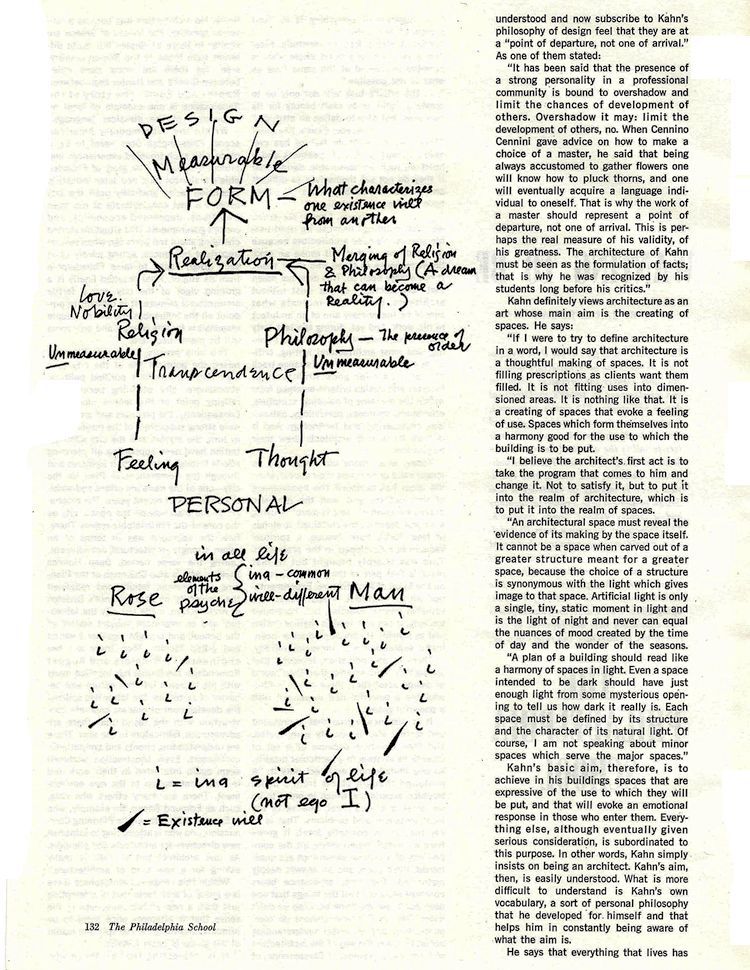 DESIGN
Measurable
FORM — What characterizes
one existence will
from another
Realization — Merging of Religion
& Philosophy (A dream
that can become a
Reality.)
Love.
Nobility
Religion
Philosophy — The presence of
order
Unmeasurable
Unmeasurable
Transcendence
Feeling
Thought
PERSONAL
in all life
elements
of the
psyche
ina - common
will - different
Rose
Man
i = ina spirit of life
(not ego I)
= Existence will
132 The Philadelphia School
understood and now subscribe to Kahn's
philosophy of design feel that they are at
a “point of departure, not one of arrival.”
As one of them stated:
“It has been said that the presence of
a strong personality in a professional
community is bound to overshadow and
limit the chances of development of
others. Overshadow it may: limit the
development of others, no. When Cennino
Cennini gave advice on how to make a
choice of a master, he said that being
always accustomed to gather flowers one
will know how to pluck thorns, and one
will eventually acquire a language indi-
vidual to oneself. That is why the work of
a master should represent a point of
departure, not one of arrival. This is per-
haps the real measure of his validity, of
his greatness. The architecture of Kahn
must be seen as the formulation of facts;
that is why he was recognized by his
students long before his critics.”
Kahn definitely views architecture as an
art whose main aim is the creating of
spaces. He says:
“If I were to try to define architecture
in a word, I would say that architecture is
a thoughtful making of spaces. It is not
filling prescriptions as clients want them
filled. It is not fitting uses into dimen-
sioned areas. It is nothing like that. It is
a creating of spaces that evoke a feeling
of use. Spaces which form themselves into
a harmony good for the use to which the
building is to be put.
“I believe the architect's first act is to
take the program that comes to him and
change it. Not to satisfy it, but to put it
into the realm of architecture, which is
to put it into the realm of spaces.
“An architectural space must reveal the
evidence of its making by the space itself.
It cannot be a space when carved out of a
greater structure meant for a greater
space, because the choice of a structure
is synonymous with the light which gives
image to that space. Artificial light is only
a single, tiny, static moment in light and
is the light of night and never can equal
the nuances of mood created by the time
of day and the wonder of the seasons.
“A plan of a building should read like
a harmony of spaces in light. Even a space
intended to be dark should have just
enough light from some mysterious open-
ing to tell us how dark it really is. Each
space must be defined by its structure
and the character of its natural light. Of
course, I am not speaking about minor
spaces which serve the major spaces.”
Kahn's basic aim, therefore, is to
achieve in his buildings spaces that are
expressive of the use to which they will
be put, and that will evoke an emotional
response in those who enter them. Every-
thing else, although eventually given
serious consideration, is subordinated to
this purpose. In other words, Kahn simply
insists on being an architect. Kahn's aim,
then, is easily understood. What is more
difficult to understand is Kahn's own
vocabulary, a sort of personal philosophy
that he developed for himself and that
helps him in constantly being aware of
what the aim is.
He says that everything that lives has